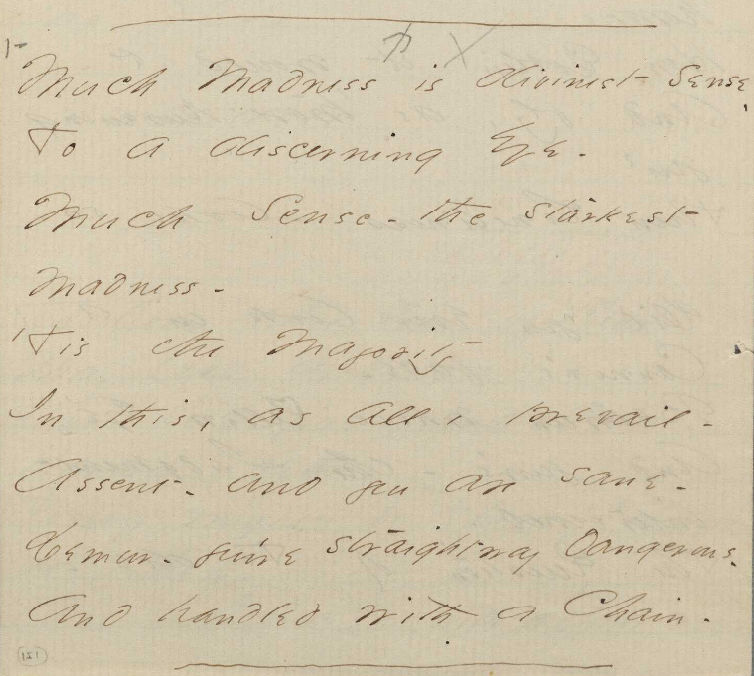 Much Madness is divinest Sense,
To a discerning Eye -
Much Sense - the starkest
Madness -
'Tis the Majority
In this, as All, prevail -
Assent - and you are sane -
Demur - you're straightway dangerous -
And handled with a Chain -